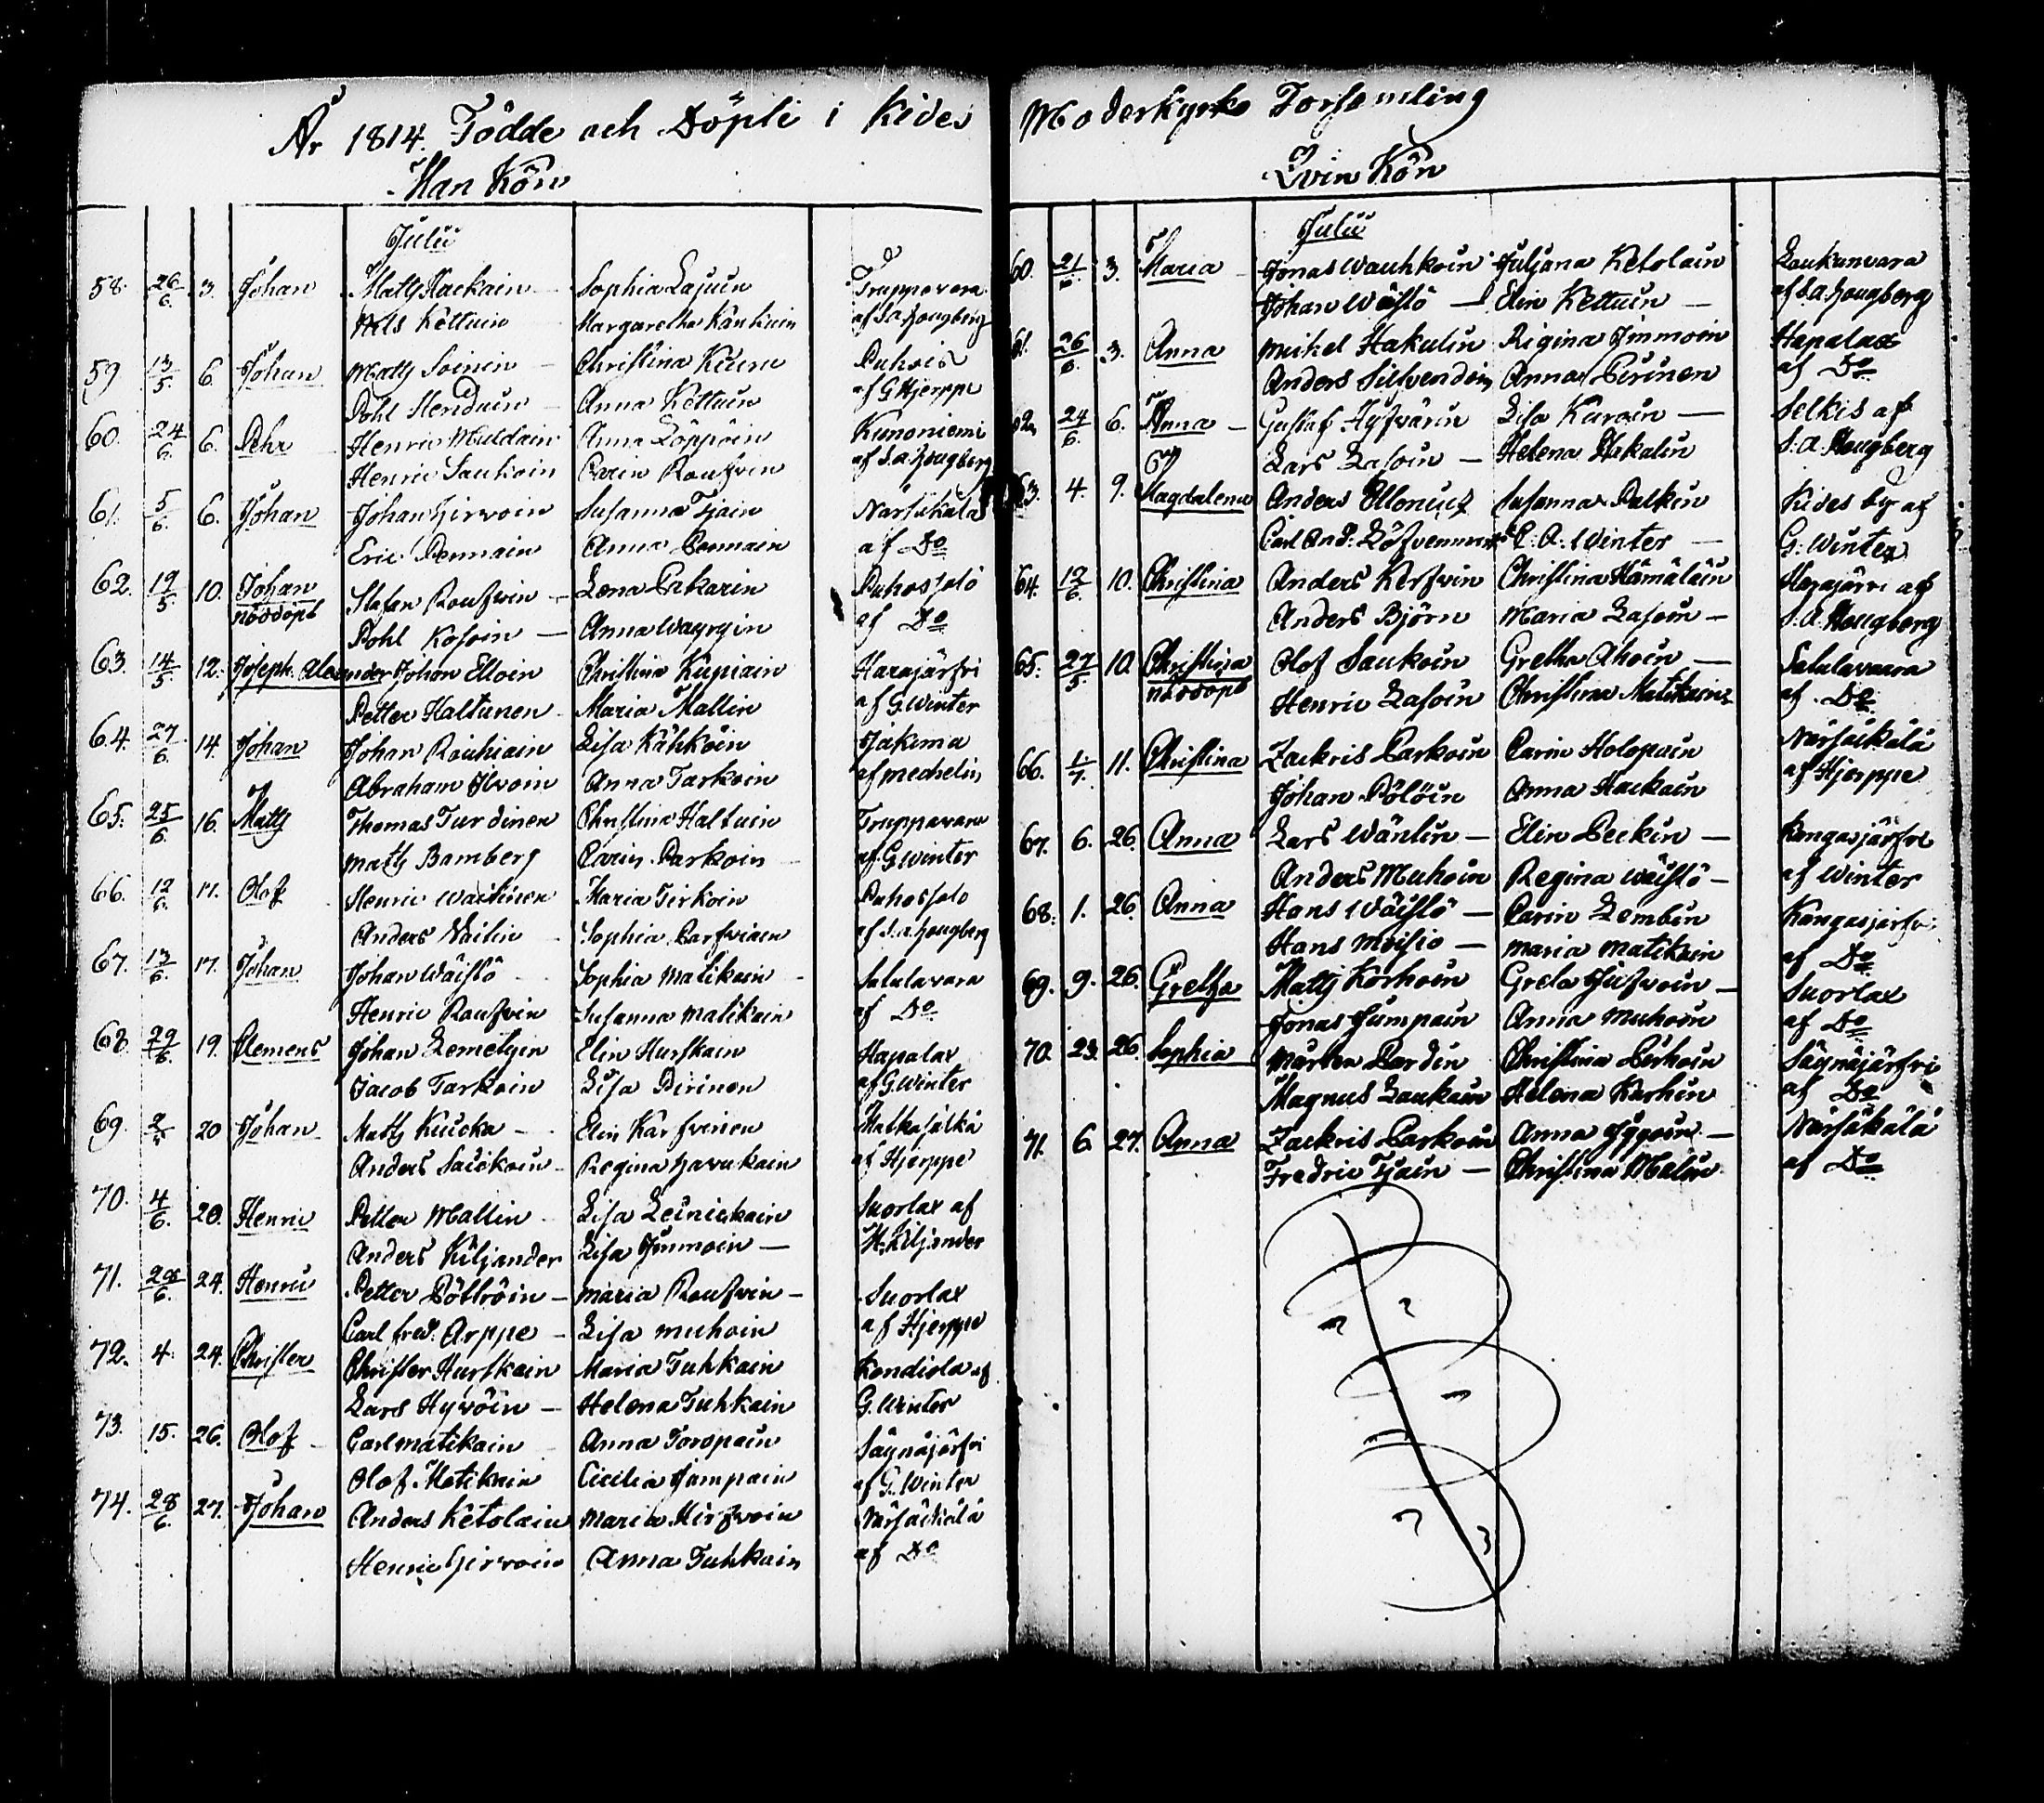 År 1814. Födde och Döpte i Kides Moderkyrko Församling
Man Kön
Julii
58. 26/6. 3. Johan Matts Hackain Sophia Lajuin Truppovara
Nils Kettuin Margaretha Känkuin af S.A. Hougberg
59. 13/5 6. Johan Matts Soinin Christina Kiiuru Puhois
Pohl Henduin Anna Kettuin af G Hjerppe
60. 24/6. 6. Pehr Henric Muldain Anna Löppöin Kunoniemi
Henric Saukoin Carin Roufvin af S.A. Hougberg
61. 5/6. 6. Johan Johan Hirvoin Susanna Tjain Närsäkälä
Eric Pennain Anna Pennain af Do
62. 19/5. 10. Johan Stafan Roufvin Lena Pakarin Puhossalo
nöddöpt
Pohl Kosoin Anna Wäyryin af Do
63. 14/5 12. Joseph Alexander Johan Elloin Christina Kupiain Harajärfvi
Petter Haltunen Maria Mallin af G. Winter
64. 27/6. 14. Johan Johan Rouhiain Lisa Kähköin Jakima
Abraham Ilvoin Anna Tarkoin af Mechelin
65. 25/6. 16. Matts Thomas Turdinen Christina Haltuin Truppovara
Matts Bamberg Carin Parkoin af G. Winter
66. 12/6. 17. Olof Henric Wartinen Maria Tirkoin Puhossalo
Anders Nailin Sophia Parfviain af S.A. Hougberg
67. 13/6. 17. Johan Johan Wäistö Sophia Matikain Satulavara
Henric Roufvin Susanna Matikain af Do
68. 29/6. 19. Clemens Johan Lemetyin Elin Hurskain Hapalax
Jacob Tarkoin Lisa Pirinen af G. Winter
69. 20 Johan Matts Kuicka Elin Karfvinen Matkasälkä
Anders Saickoin Regina Havukain af Hjerppe
70. 4/6. 20. Henric Petter Mallin Lisa Leinickain Suorlax af
Anders Kiljander Lisa Immoin H. Kiljander
71. 28/6. 24. Henric Petter Pöllöin Maria Roufvin Suorlax
Carl Fred. Arppe Lisa Muhoin af Hjerppe
72. 4. 24. Christer Christer Hurskain Maria Tuhkain Kondiola af
Lars Hyvöin Helena Tuhkain G. Winter
73. 15. 26. Olof Carl Matikain Anna Toropain Säynäjärfvi
Olof Matikain Cicilia Jampain af G. Winter
74. 28/6. 27. Johan Anders Ketolain Maria Hirfvoin Närsäkälä
Henric Hirvoin Anna Tuhkain af Do
Qvin Kön
Julii
60. 21/6 3. Maria Jonas Wauhkoin Juljana Ketolain Laukunvara
Johan Wäistö Elin Kettuin af S.A. Hougberg
61. 26/6 3. Anna Mickel Hakulin Regina Immoin Hapalax
Anders Silvendoin Anna Pirinen af Do
62. 24/6. 6. Anna Gustaf Hyfvärin Lisa Kuroin Selkis af
Lars Lasoin Helena Hakalin S.A. Hougberg
63. 4. 9. Magdalena Anders Ollonius Susanna Palkin Kides by af
Carl And. Löfvenmark C. A. Winter G. Winter
64. 12/6. 10. Christina Anders Kerfvin Christina Hämäläin Harajärvi af
Anders Björn Maria Lasoin S.A. Hougberg
65. 27/5. 10. Christina Olof Saukoin Gretha Ahoin Satulavaara
nöddöpt
Henric Lasoin Christina Matikain af Do
66. 1/7. 11. Christina Zackris Parkoin Carin Holopain Närsäkälä
Johan Pölöin Anna Hackain af Hjerppe
67. 6. 26. Anna Lars Wänlin Elin Peckin Kangasjärfvi
Anders Muhoin Regina Wäistö af Winter
68. 1. 26. Anna Hans Wäistö Carin Lembin Kangasjärfvi
Hans Moisio Maria Matikain af Do
69. 9. 26. Gretha Matts Korhoin Greta Hufvoin Suorlax
Jonas Jumpain Anna Muhoin af Do
70. 23. 26 Sophia Mårten Pardin Christina Perhoin Säynäjärfvi
Magnus Laukain Helena Karhin af Do
71. 6. 27. Anna Zackris Parkoin Anna Yyoin Närsäkälä
Fredric Tjain Christina Melin af Do